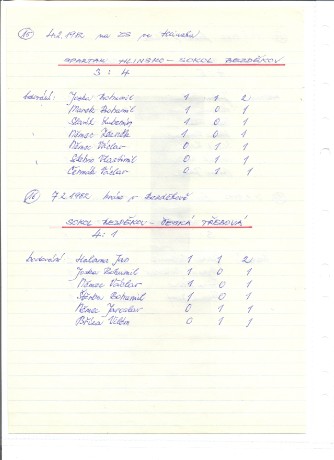 15 4.2.1982 na ZS ve Hlinsku
SPARTAK HLINSKO - SOKOL BEZDĚKOV
3 : 4
bodování: Joska Bohumil 1 1 2
Marek Bohumil 1 0 1
Slavík Lubomír 1 0 1
Němec Zdeněk 1 0 1
Němec Václav 0 1 1
Vlastimil 0 1 1
Čermák Václav 0 1 1
16 7.2.1982 v Bezděkově
SOKOL BEZDĚKOV - ČESKÁ TŘEBOVÁ
4 : 1
bodování Halama Jan 1 1 2
Joska Bohumil 1 0 1
Němec Václav 1 0 1
Bohumil 1 0 1
Němec Jaroslav 0 1 1
Vilém 0 1 1